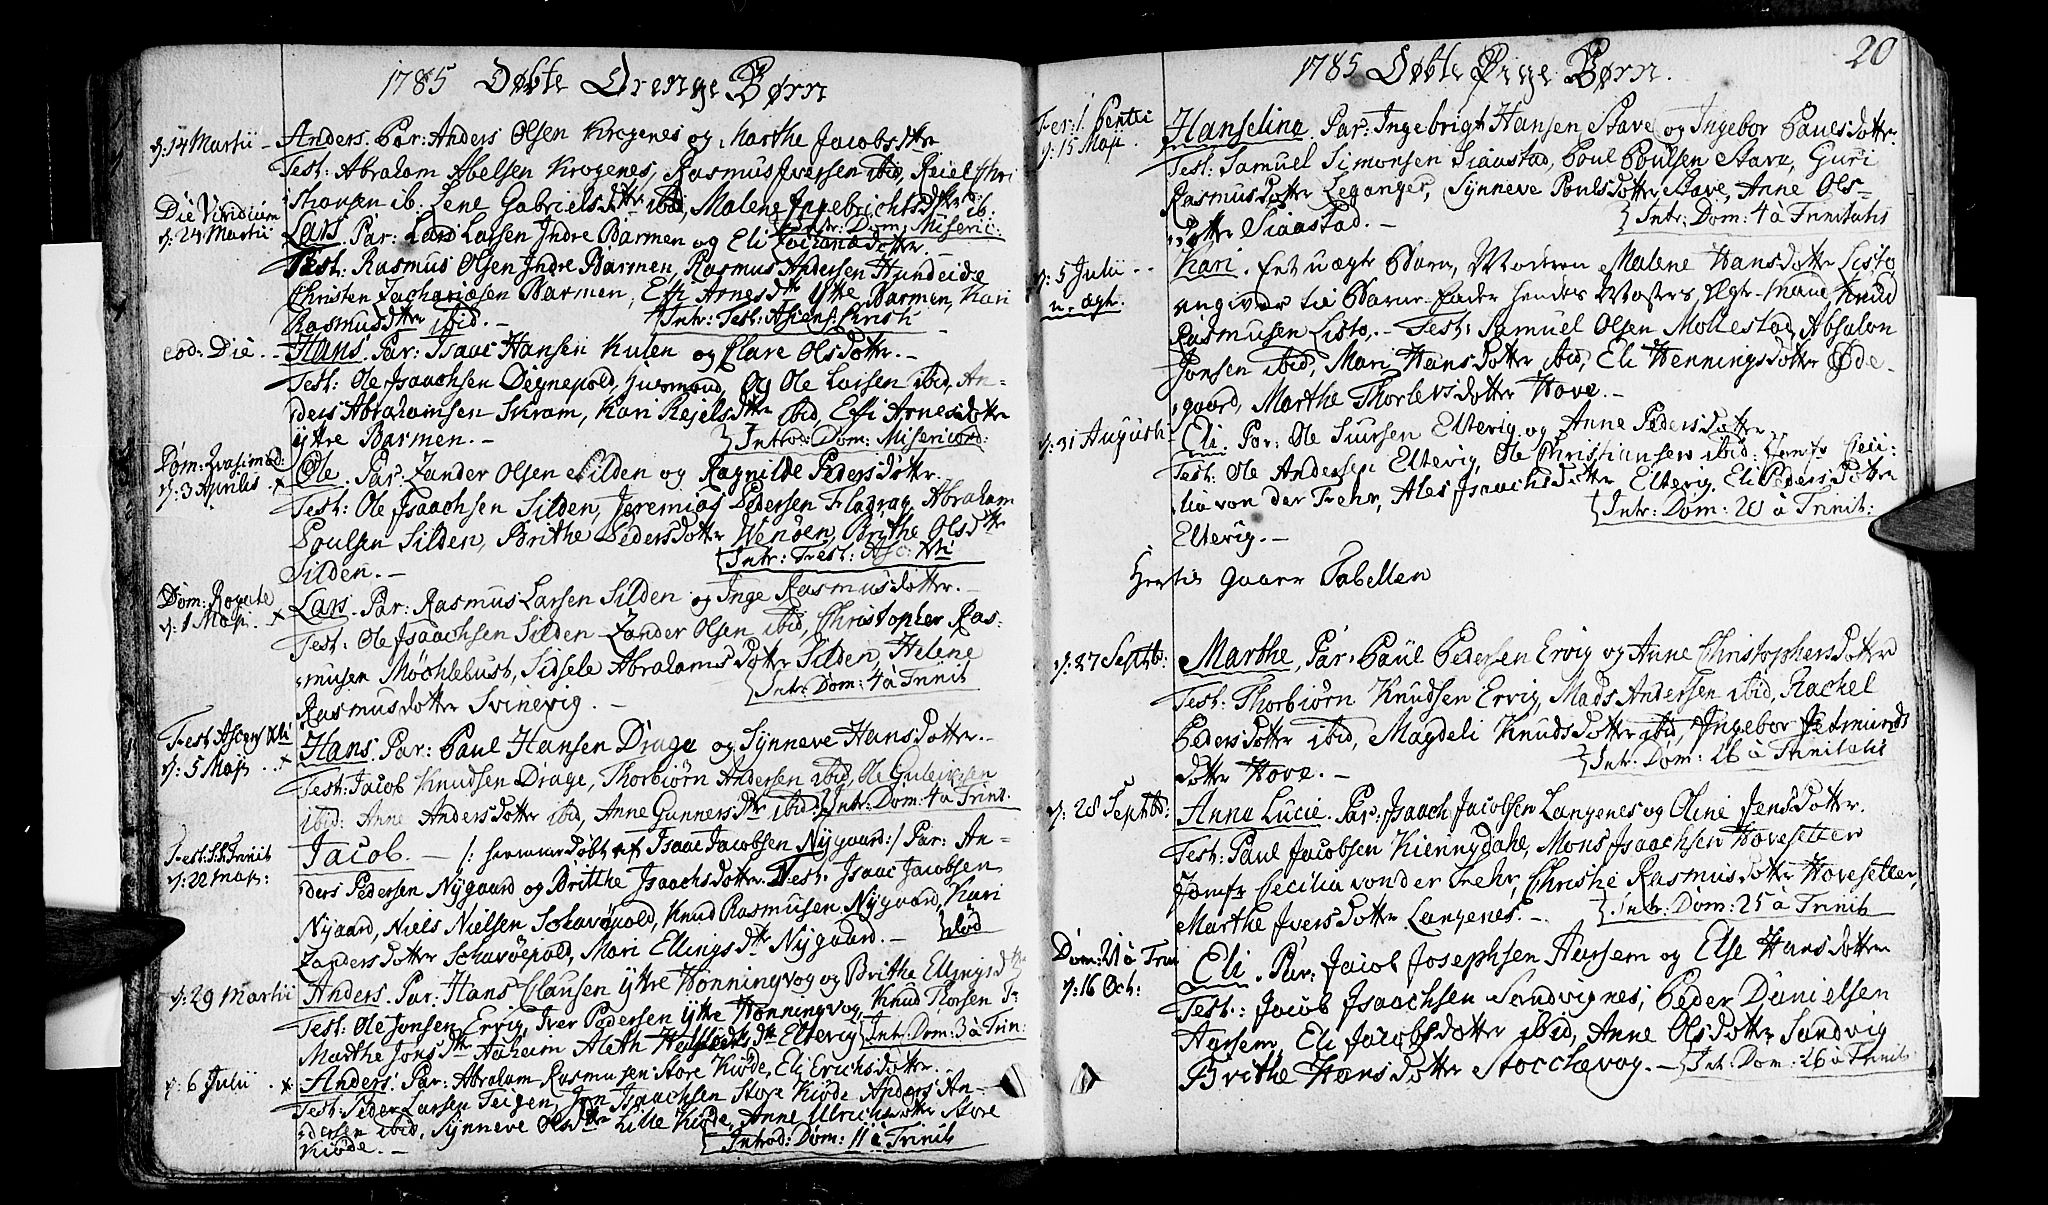 1785 Døbte Drenge Børn
d: 14 Martii - Anders. Par: Anders Olsen Krogenes og Marthe Jacobsdttr
Test: Abraham Abelsen Krogenes, Rasmus Iversen ibid, Reiel Chri
sthansen ib. Lene Gabrielsdttr ibid, Malene Ingebrichtsdttr ib:
Intr: Dom: Miseric:
Die Viridium
d: 24 Martii
Lars. Par: Lars Larsen Indre Barmen og Eli dotter.
Test: Rasmus Olsen Indre Barmen, Rasmus Andersen Hundeide
Christen Zachariæsen Barmen, Effi Arnesdttr Ytre Barmen, Kari
Rasmusdttr ibid. - Intr: Fest: Ascens: Christi
eod: Die. - Hans. Par: Isaac Hansen Kulen og Clare Olsdotter. -
Test: Ole Isaachsen Degnepold, og Ole Larsen ibid, An-
ders Abrahamsen Skram, Kari Rejelsdttr ibid Effi Arnesdotter
ÿttre Barmen. - Introd: Dom: Misericord:
Dom: Qvasimod:
d: 3 Aprilis x
Ole. Par: Zander Olsen Silden og Ragnilde Pedersdotter.
Test: Ole Isaachsen Silden, Jeremias Pedersen Flaarag, Abraham
Poulsen Silden, Brithe Pedersdotter Wenden, Brythe Olsdttr
Silden. - Intr: Fest: Asc: Xti
Dom: Rogate
d: 1 Maji. x
Lars. Par: Rasmus Larsen Silden og Inge Rasmusdotter. -
Test: Ole Isaachsen Silden Zander Olsen ibid, Christopher Ras-
musen Møchlebust, Sidsele Abrahamsdotter Silden, Helene
Rasmusdotter Svinevig. - Intr: Dom: 4 à Trinit
Fest Ascens Xti
d: 5 Maji. x
Hans. Par: Paul Hansen Drage og Synneve Hansdotter. -
Test: Jacob Knudsen Drage, Thorbiørn Andersen ibid, Ole Guleiksen
ibid: Anne Andersdotter ibid, Anne Gunnersdttr ibid. Intr: Dom: 4 à Trinit.
Fest: S.S. Trinit
d: 22 Maji:
Jacob. - /: hiemmedøbt af Isaac Jacobsen Nÿgaard :/ Par: An-
ders Pedersen Nÿgaard og Britthe Isaachsdotter. Test: Isaac Jacobsen
Nÿgaard, Niels Nielsen Scharøpold, Knud Rasmusen Nÿgaard, Kari
Zandersdotter Scharøepold, Mari Ellingsdttr Nÿgaard. - død
d: 29 Martii
Anders. Par: Hans Clausen ÿttre Honningvog og Brithe Ellingsdttr
Test: Ole Jonsen Ervig, Iver Pedersen ÿttre Honningvog, Knud Thorsen
Marthe Jonsdttr Aaheim Aleth dttr Eltevig Intr: Dom: 3 à Trin:
d: 6 Julii . x
Anders. Par: Abraham Rasmusen Store Kiøde, Eli Erichsdotter. .
Test: Peder Larsen Teigen, Jon Isaachsen Store Kiøde Anders An-
dersen ibid, Synneve Olsdttr Lille Kiøde, Anne Ullrichsdotter Store
Kiøde. - Introd: Dom: 11 à Trinit
20
1785 Døbte Pige Børn.
Fer: 1. Pentec
d: 15 Maji.
Hanselina. Par: Ingebrigt Hansen Stave og Ingebor Paulsdotter
Test: Samuel Simonsen Siaastad, Poul Poulsen Stave, Guri
Rasmusdotter Leganger, Synneve Poulsdotter Stave, Anne Ols-
dotter Siaastad. - Intr: Dom: 4 à Trinitatis
d: 5 Julii . .
u-ægt.
Kari. Et uægte Barn, Moderen Malene Hansdotter Listo
angiver til Barne-Fader hendes Mosters Ægte-Mand Knud
Rasmusen Listo, - Test: Samuel Olsen Mollestad, Absalon
Jonsen ibid, Mari Hansdotter ibid, Eli Henningsdotter Øde-
gaard, Marthe Thorlevsdotter Hove. -
d: 31 Augusti
Eli. Par: Ole Siursen Eltevig og Anne Pedersdotter.
Test: Ole Andersen Eltevig, Ole Christiansen ibid: Jomfr Ceci-
lia von der Fehr, Ales Isaachsdotter Eltevig. Eli Pedersdotter
Eltevig. - Intr: Dom: 20 à Trinit:
Hertil gaaer Tabellen
d: 27 Septbr:
Marthe, Par: Paul Pedersen Ervig og Anne Christophersdotter
Test: Thorbiørn Knudsen Ervig, Mads Andersen ibid, Rachel
Pedersdotter ibid, Magdeli Knudsdotter ibid, Ingebor Jetmunds
dotter Hove. - Intr: Dom: 26 à Trinitatis
d: 28 Septbr:
Anna Lucie. Par: Isaach Jacobsen Langenes og Oline Jensdotter.
Test: Paul Jacobsen Kiennsdahe, Mons Isaachsen Hovesetter
Jomfr Cecilia von der Fehr, Christie Rasmusdotter Hovesetter,
Marthe Iversdotter Langenes. - Intr: Dom: 25 à Trinit
Dom: 21 à Trin
d: 16 Oct:
Eli. Par: Jacob Josephsen Aarsem og Else Hansdotter
Test: Jacob Isaachsen Sandvignes, Peder Danielsen
Aarsem, Eli Jacobsdotter ibid, Anne Olsdotter Sandvig
Brithe Hansdotter Stocchevog. - Intr: Dom: 26 à Trinit